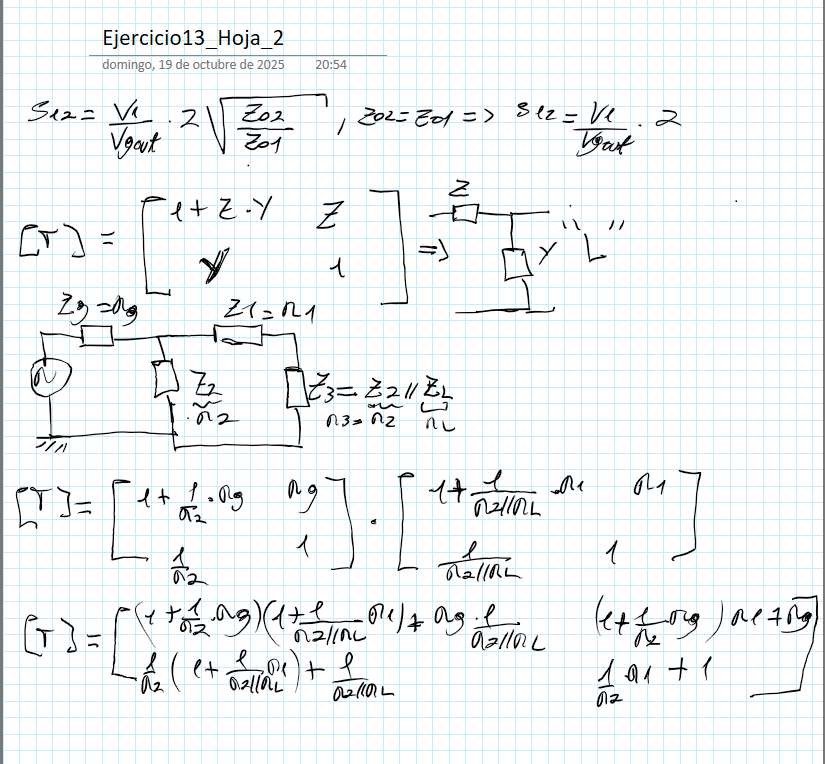 Ejercicio13_Hoja_2
domingo, 19 de octubre de 2025 20:54
S12 = V1/Vgout · 2 √(Z02/Z01) , Z02 = Z01 => S12 = V1/Vgout · 2
[T] = [ 1 + Z·Y Z ; Y 1 ] => Z Y "L"
Zg = Rg Z1 = R1
Z2 Z3 = Z2 // ZL
R2 R3 = R2 RL
[T] = [ 1 + 1/R2 · Rg Rg ; 1/R2 1 ] · [ 1 + 1/R2//RL · R1 R1 ; 1/R2//RL 1 ]
[T] = [ (1 + 1/R2 · Rg)(1 + 1/R2//RL R1) + Rg · 1/R2//RL (1 + 1/R2 Rg) R1 + Rg
1/R2 (1 + 1/R2//RL R1) + 1/R2//RL 1/R2 R1 + 1 ]